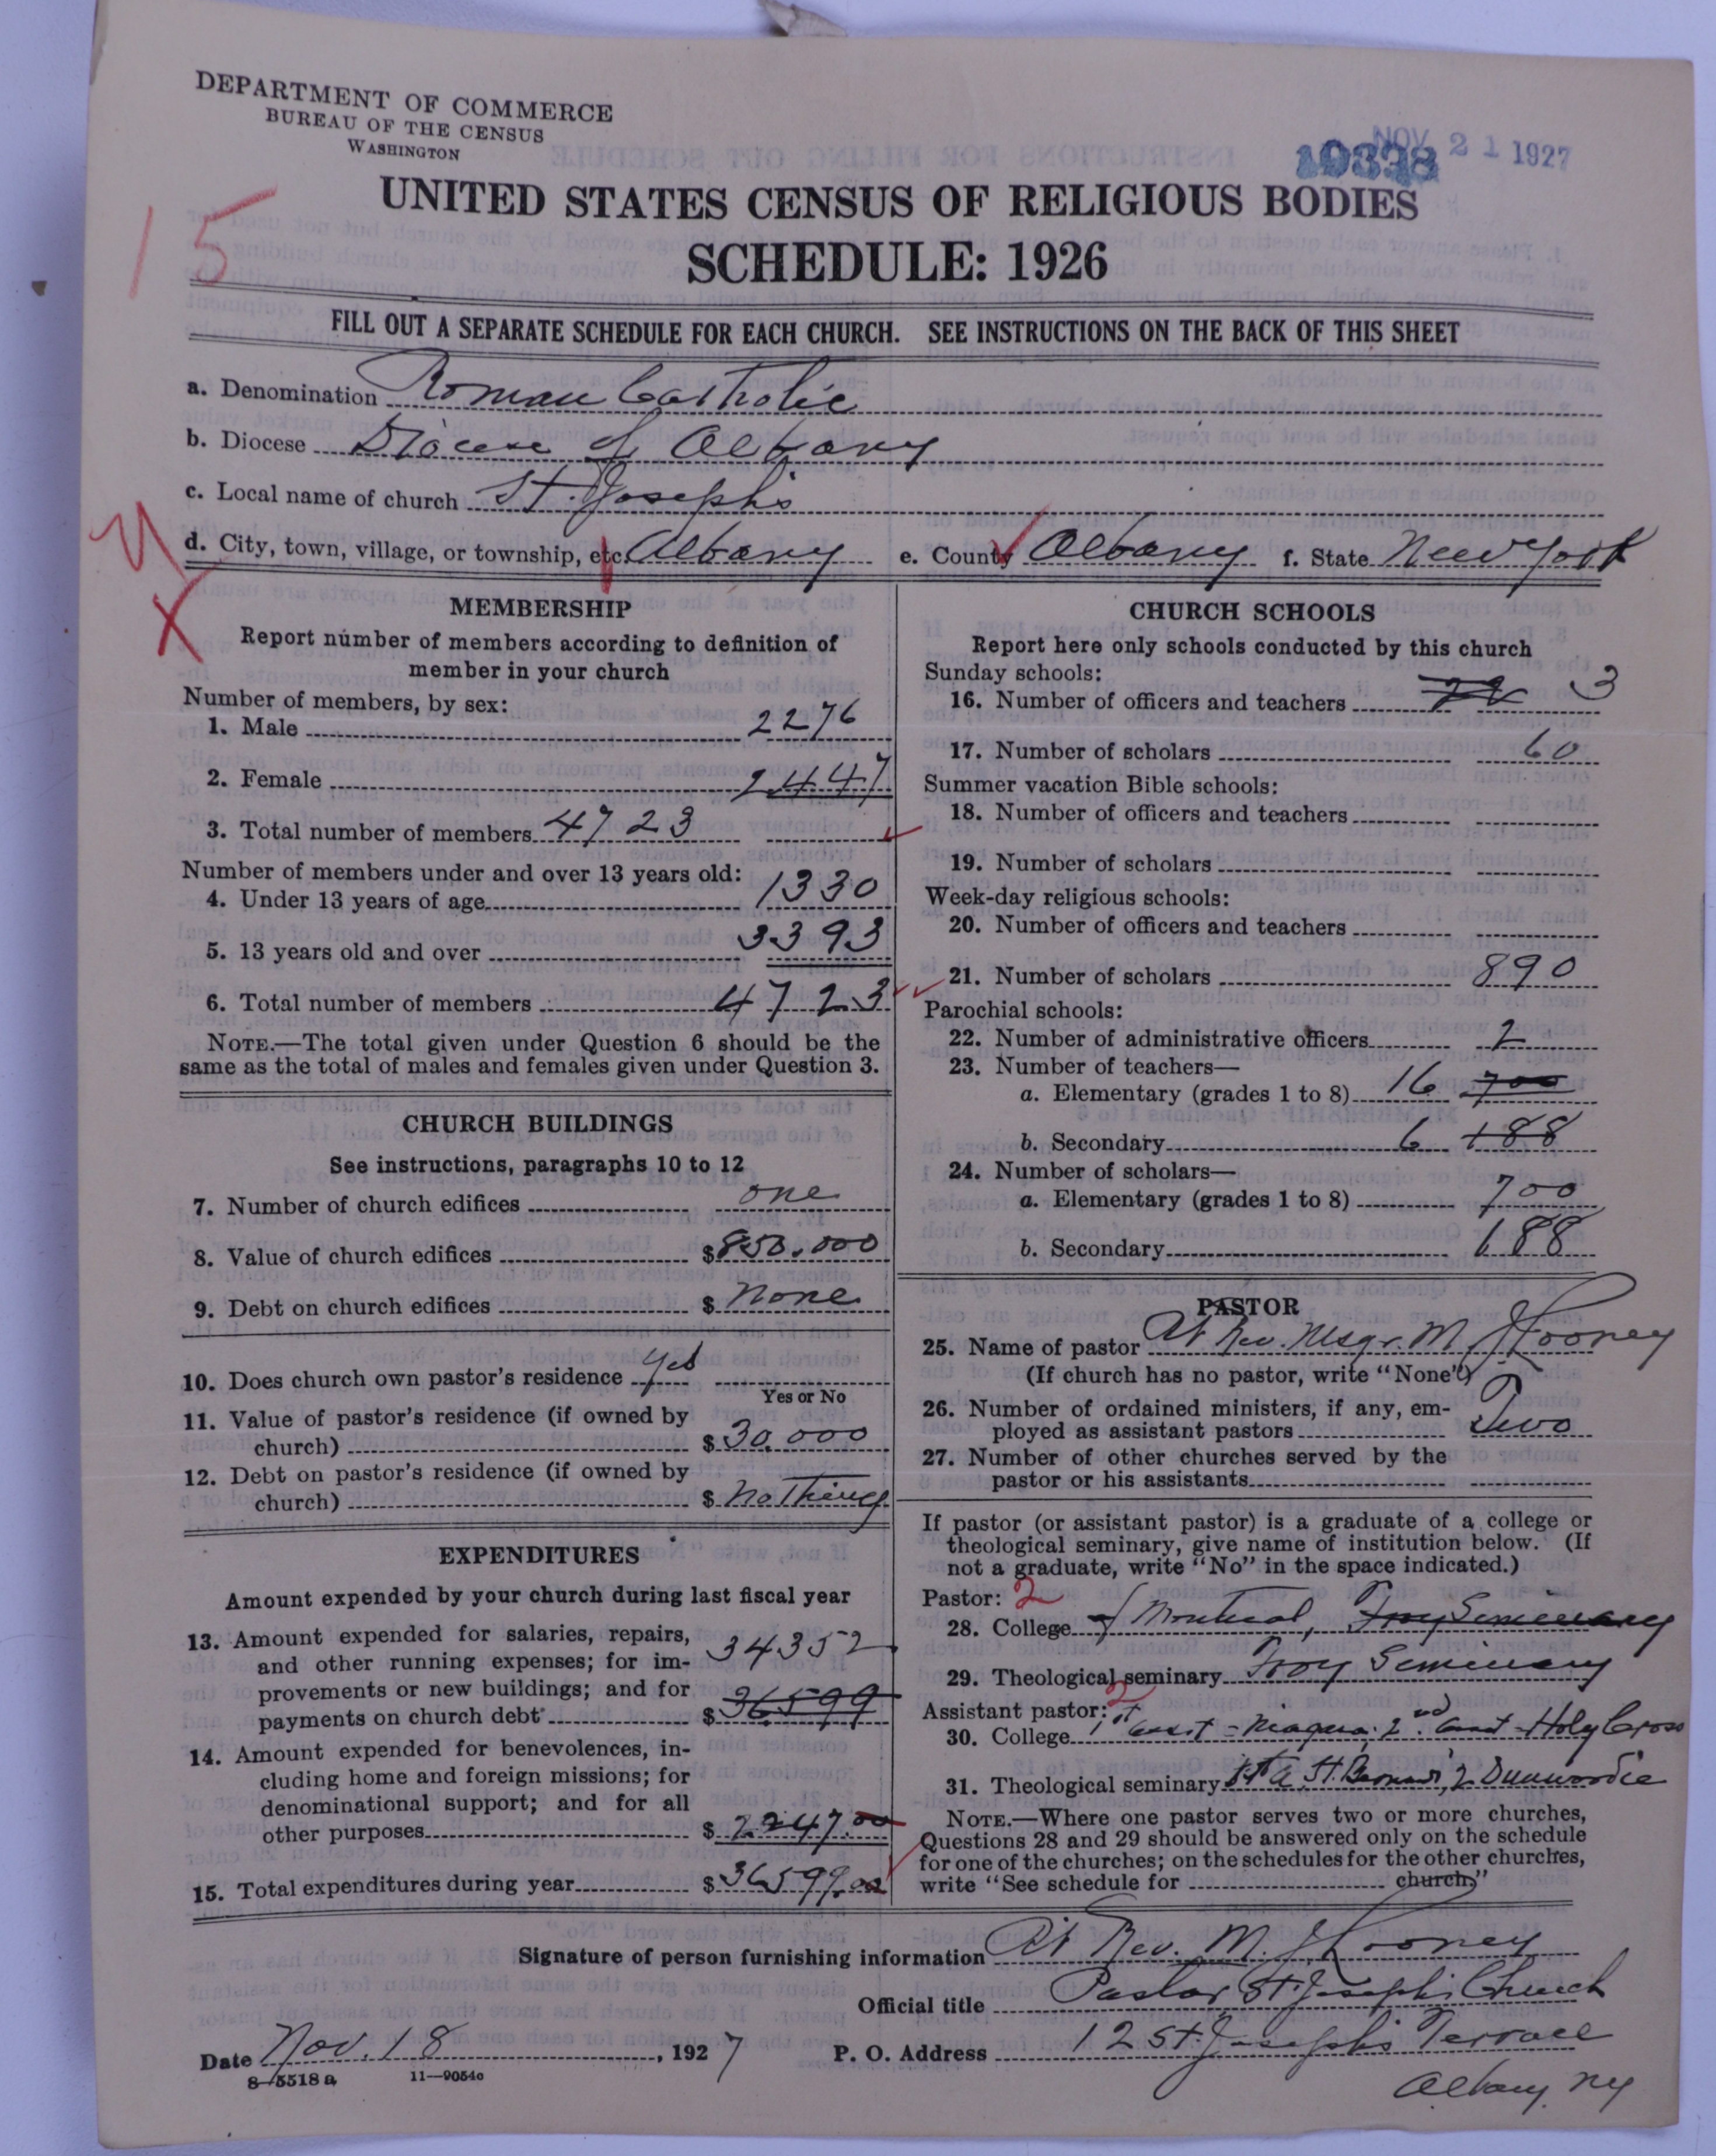 DEPARTMENT OF COMMERCE
BUREAU OF THE CENSUS
WASHINGTON
NOV 21 1927
UNITED STATES CENSUS OF RELIGIOUS BODIES
SCHEDULE: 1926
15
FILL OUT A SEPARATE SCHEDULE FOR EACH CHURCH. SEE INSTRUCTIONS ON THE BACK OF THIS SHEET
a. Denomination Roman Catholic
b. Diocese Diocese of Albany
c. Local name of church St. Joseph's
d. City, town, village, or township, etc. Albany e. County Albany f. State New York
MEMBERSHIP
Report number of members according to definition of
member in your church
Number of members, by sex:
1. Male 2276
2. Female 2447
3. Total number of members 4723
Number of members under and over 13 years old:
4. Under 13 years of age 1330
5. 13 years old and over 3393
6. Total number of members 4723
NOTE.—The total given under Question 6 should be the
same as the total of males and females given under Question 3.
CHURCH BUILDINGS
See instructions, paragraphs 10 to 12
7. Number of church edifices one
8. Value of church edifices $850.000
9. Debt on church edifices $ none
10. Does church own pastor's residence yes
Yes or No
11. Value of pastor's residence (if owned by
church) $30.000
12. Debt on pastor's residence (if owned by
church) $ nothing
EXPENDITURES
Amount expended by your church during last fiscal year
13. Amount expended for salaries, repairs, 34352
and other running expenses; for im-
provements or new buildings; and for
payments on church debt $36599
14. Amount expended for benevolences, in-
cluding home and foreign missions; for
denominational support; and for all
other purposes $2247.00
15. Total expenditures during year $36599.00
CHURCH SCHOOLS
Report here only schools conducted by this church
Sunday schools:
16. Number of officers and teachers 3
17. Number of scholars 60
Summer vacation Bible schools:
18. Number of officers and teachers
19. Number of scholars
Week-day religious schools:
20. Number of officers and teachers
21. Number of scholars 890
Parochial schools:
22. Number of administrative officers 2
23. Number of teachers—
a. Elementary (grades 1 to 8) 16 700
b. Secondary 6 188
24. Number of scholars—
a. Elementary (grades 1 to 8) 700
b. Secondary 188
PASTOR
25. Name of pastor Rt Rev. Msgr. M J Looney
(If church has no pastor, write "None")
26. Number of ordained ministers, if any, em-
ployed as assistant pastors Two
27. Number of other churches served by the
pastor or his assistants
If pastor (or assistant pastor) is a graduate of a college or
theological seminary, give name of institution below. (If
not a graduate, write "No" in the space indicated.)
Pastor: 2
28. College of Montreal, Troy Seminary
29. Theological seminary Troy Seminary
Assistant pastor: 2
30. College 1st asst - Niagara; 2nd asst - Holy Cross
31. Theological seminary 1st a St. Bernard's, 2 Dunwoodie
NOTE.—Where one pastor serves two or more churches,
Questions 28 and 29 should be answered only on the schedule
for one of the churches; on the schedules for the other churches,
write "See schedule for church"
Signature of person furnishing information Rt Rev. M. J Looney
Official title Pastor St. Joseph's Church
Date Nov. 18, 1927 P. O. Address 12 St. Josephs Terrace
Albany. NY
8-5518a 11-9054a